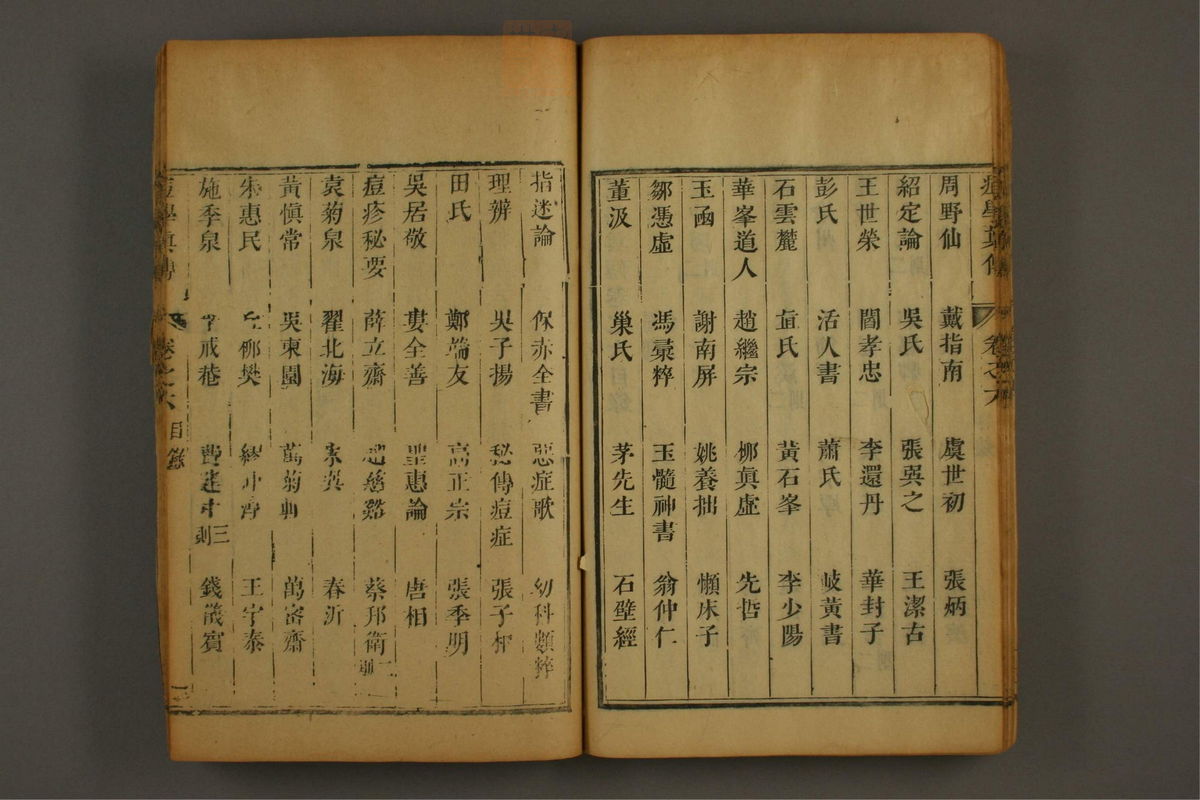 痘學真傳 卷之六
周野仙 戴指南 虞世初 張炳
紹定論 吳氏 張巽之 王潔古
王世榮 閻孝忠 李還丹 華封子
彭氏 活人書 蕭氏 岐黃書
石雲麓 直氏 黃石峯 李少陽
華峯道人 趙繼宗 柳眞虛 先哲
玉函 謝南屏 姚養拙 懶床子
鄒憑虛 馮彙粹 玉髓神書 翁仲仁
董汲 巢氏 茅先生 石壁經
指迷論 保赤全書 惡症歌 幼科類粹
理辨 吳子揚 秘傳痘症 張子和
田氏 鄭端友 高正宗 張季明
吳居敬 婁全善 聖惠論 唐相
痘疹秘要 薛立齋 趙慈谿 蔡邦衛二則
袁菊泉 翟北海 春沂
黃愼常 吳東園 萬菊軒 萬密齋
朱惠民 柳樊 繆仲淳 王宇泰
施季泉 李戒菴 費建中三則 錢儀賓
痘學眞傳 卷之六 目錄